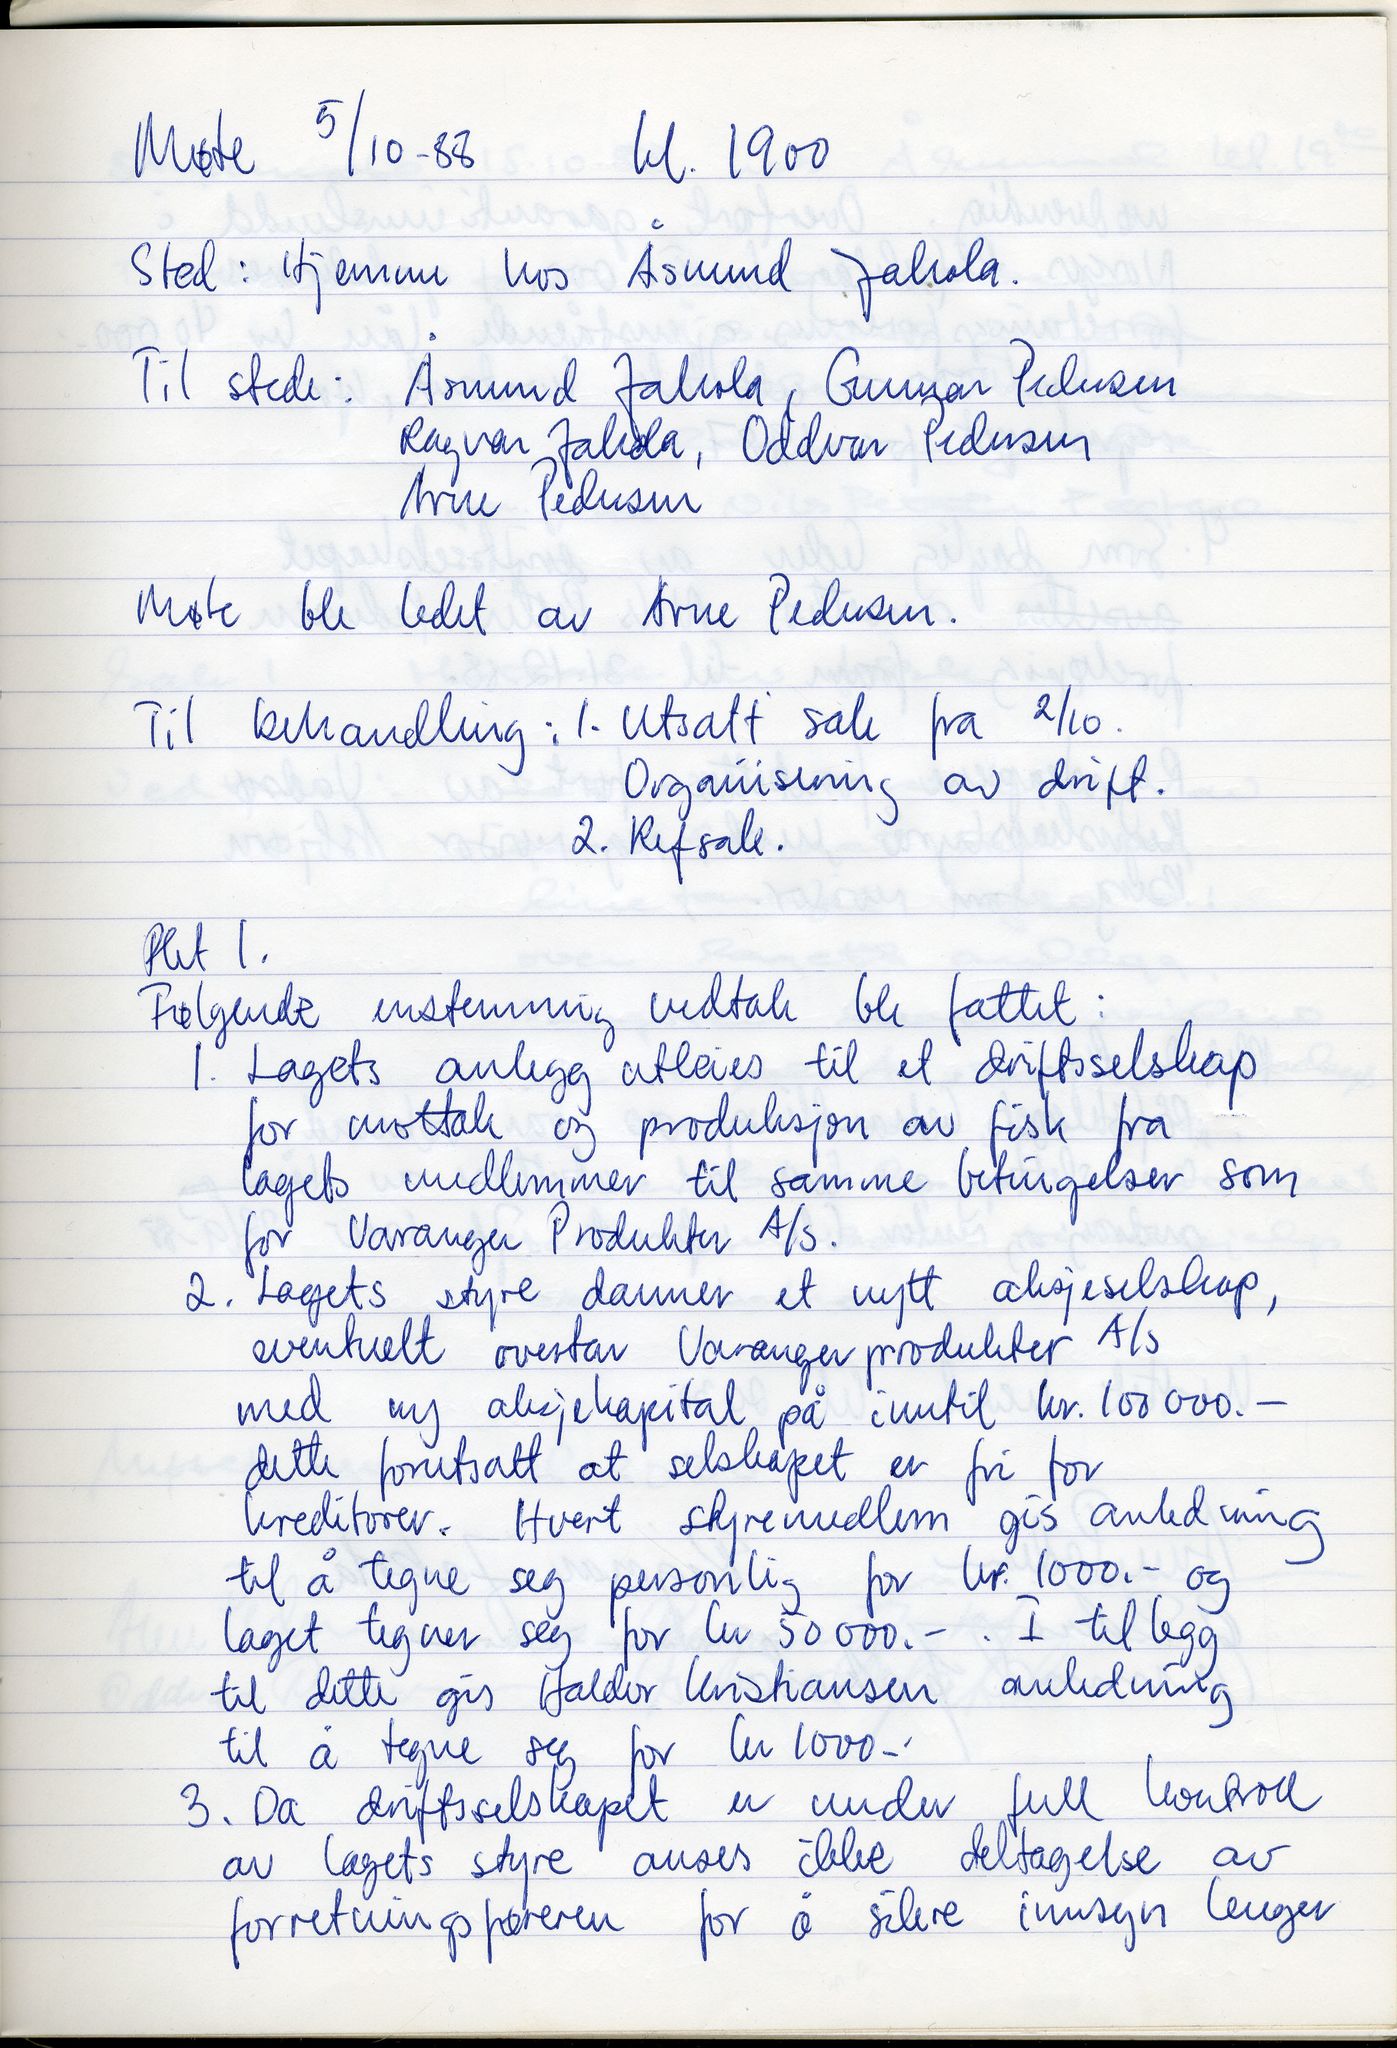 Møte 5/10-88 kl. 1900
Sted: Hjemme hos Åsmund Jakola.
Til stede: Åsmund Jakola, Gunnar Pedersen
Ragnar Jakola, Oddvar Pedersen
Arne Pedersen
Møte ble ledet av Arne Pedersen.
Til behandling: 1. Utsatt sak fra 2/10.
Organisering av drift.
2. Refsak.
Pkt 1.
Følgende enstemmig vedtak ble fattet:
1. Lagets anlegg utleies til et driftsselskap
for mottak og produksjon av fisk fra
lagets medlemmer til samme betingelser som
for Varanger Produkter A/S.
2. Lagets styre danner et nytt aksjeselskap,
eventuelt overtar Varangerprodukter A/S
med ny aksjekapital på inntil kr. 100 000.-
dette forutsatt at selskapet er fri for
kreditorer. Hvert styremedlem gis anledning
til å tegne seg personlig for kr. 1000.- og
laget tegner seg for kr 50 000.-. I tillegg
til dette gis Haldor Kristiansen anledning
til å tegne seg for kr 1000.-
3. Da driftsselskapet er under full kontroll
av lagets styre anses ikke deltagelse av
forretningsføreren for å sikre innsyn lenger